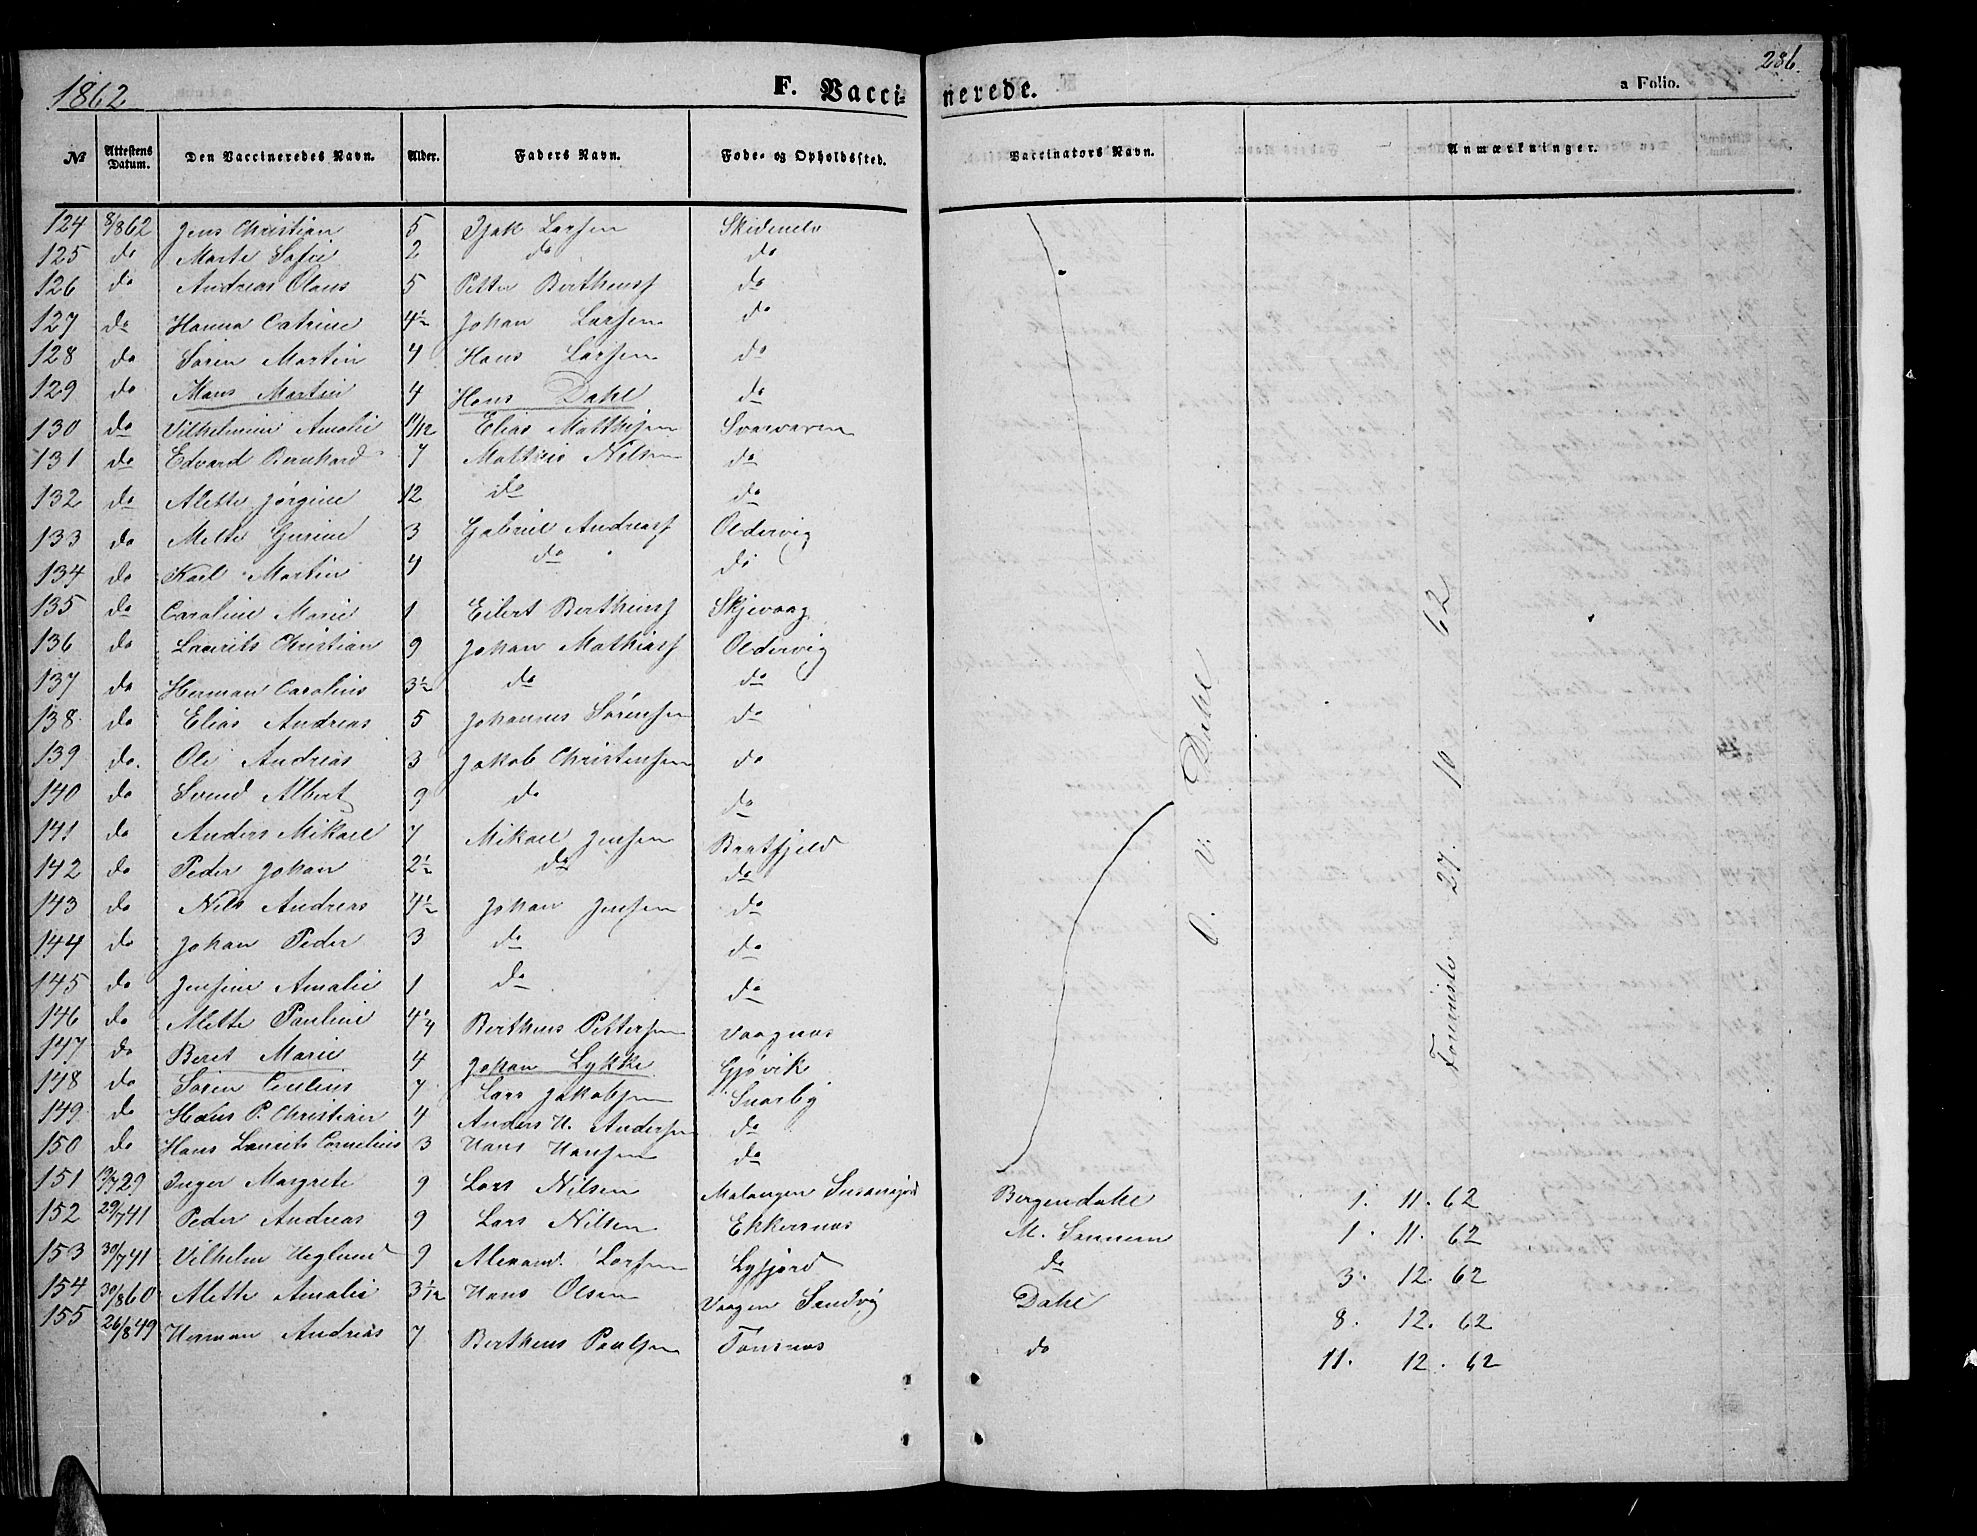 1862 F. Vaccinerede. a Folio. 286.
№ Attestens Datum. Den Vaccineredes Navn. Alder. Faders Navn. Føde- og Opholdssted. Vaccinators Navn. Anmærkninger.
124 8/8 62 Jens Christian 5 Isak Larsen
125 do Marte Sofie 2 do do
126 do Andreas Olaus 5 Petter Berthensf do
127 do Hanna Catrine 4½ Johan Larsen do
128 do Søren Martin 4 Hans Larsen do
129 do Hans Martin 4 Hans Dahl do
130 do Vilhelmine Amalie 11/12 Elias Matthisen
131 do Edvard Bernhard 7 Mathis Nilsen do
132 do Alette Jørgine 12 do do
133 do Mette Gurine 3 Gabriel Andreasf Oldervig
134 do Karl Martin 4 do do
135 do Caroline Marie 1 Eilert Berthensf Skjevaag
136 do Laurits Christian 9 Johan Mathiasf Oldervig
137 do Herman Carolius 3½ do do
138 do Elias Andreas 5 Johannes Sørensen do
139 do. Ole Andreas 3 Jakob Christensen do
140 do Svend Albert 9 do do
141 do Anders Mikael 7 Mikael Jensen Bratfjeld
142 do Peder Johan 2½ do do
143 do Nils Andreas 4½ Johan Jensen do
144 do Johan Peder 3 do do
145 do Jensine Amalie 1 do do
146 do Alette Pauline 4¼ Bertheus Pettersen Vaagnæs
147 do Beret Marie 4 Johan Lykke Gjøvik
148 do Søren 7 Lars Jakobsen Snarby
149 do Hans P. Christian 4 Anders H. Andersen do
150 do Hans Laurits Cornelius 3 Hans Hansen do
O. v. Dahl
Tønsnæs 27. 10 62
151 29 Inger Margrete 9 Lars Nilsen Malangen Bergendahl 1. 11. 62
152 29/7 41 Peder Andreas 9 Lars Nilsen Ekkersnæs M. 1. 11. 62
153 30/7 41 Vilhelm Heglund 9 Alexand. Larsen Lysfjord do 3. 12. 62
154 30/8 60 Alette Amalie 3 1/12 Hans Olsen Vaagen Sandvig Dahl 8. 12. 62
155 26/8 49 Herman Andreas 7 Bertheus Paulsen Tønsnæs do 11. 12. 62